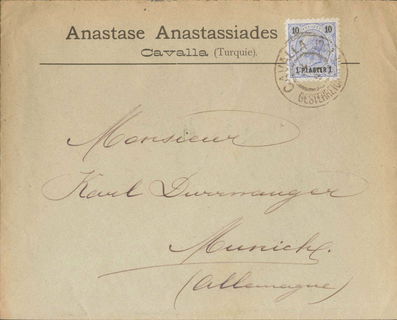 Anastase Anastassiades
Cavalla (Turquie).
10 10
1 PIASTER 1
CAVALLA
Monsieur
Karl Durrwanger
Munich.
(Allemagne)